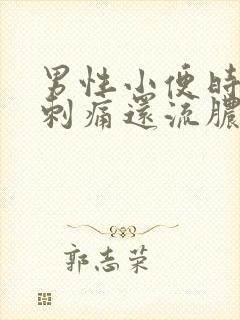 男性小便時
刺痛還流膿
郭志荣